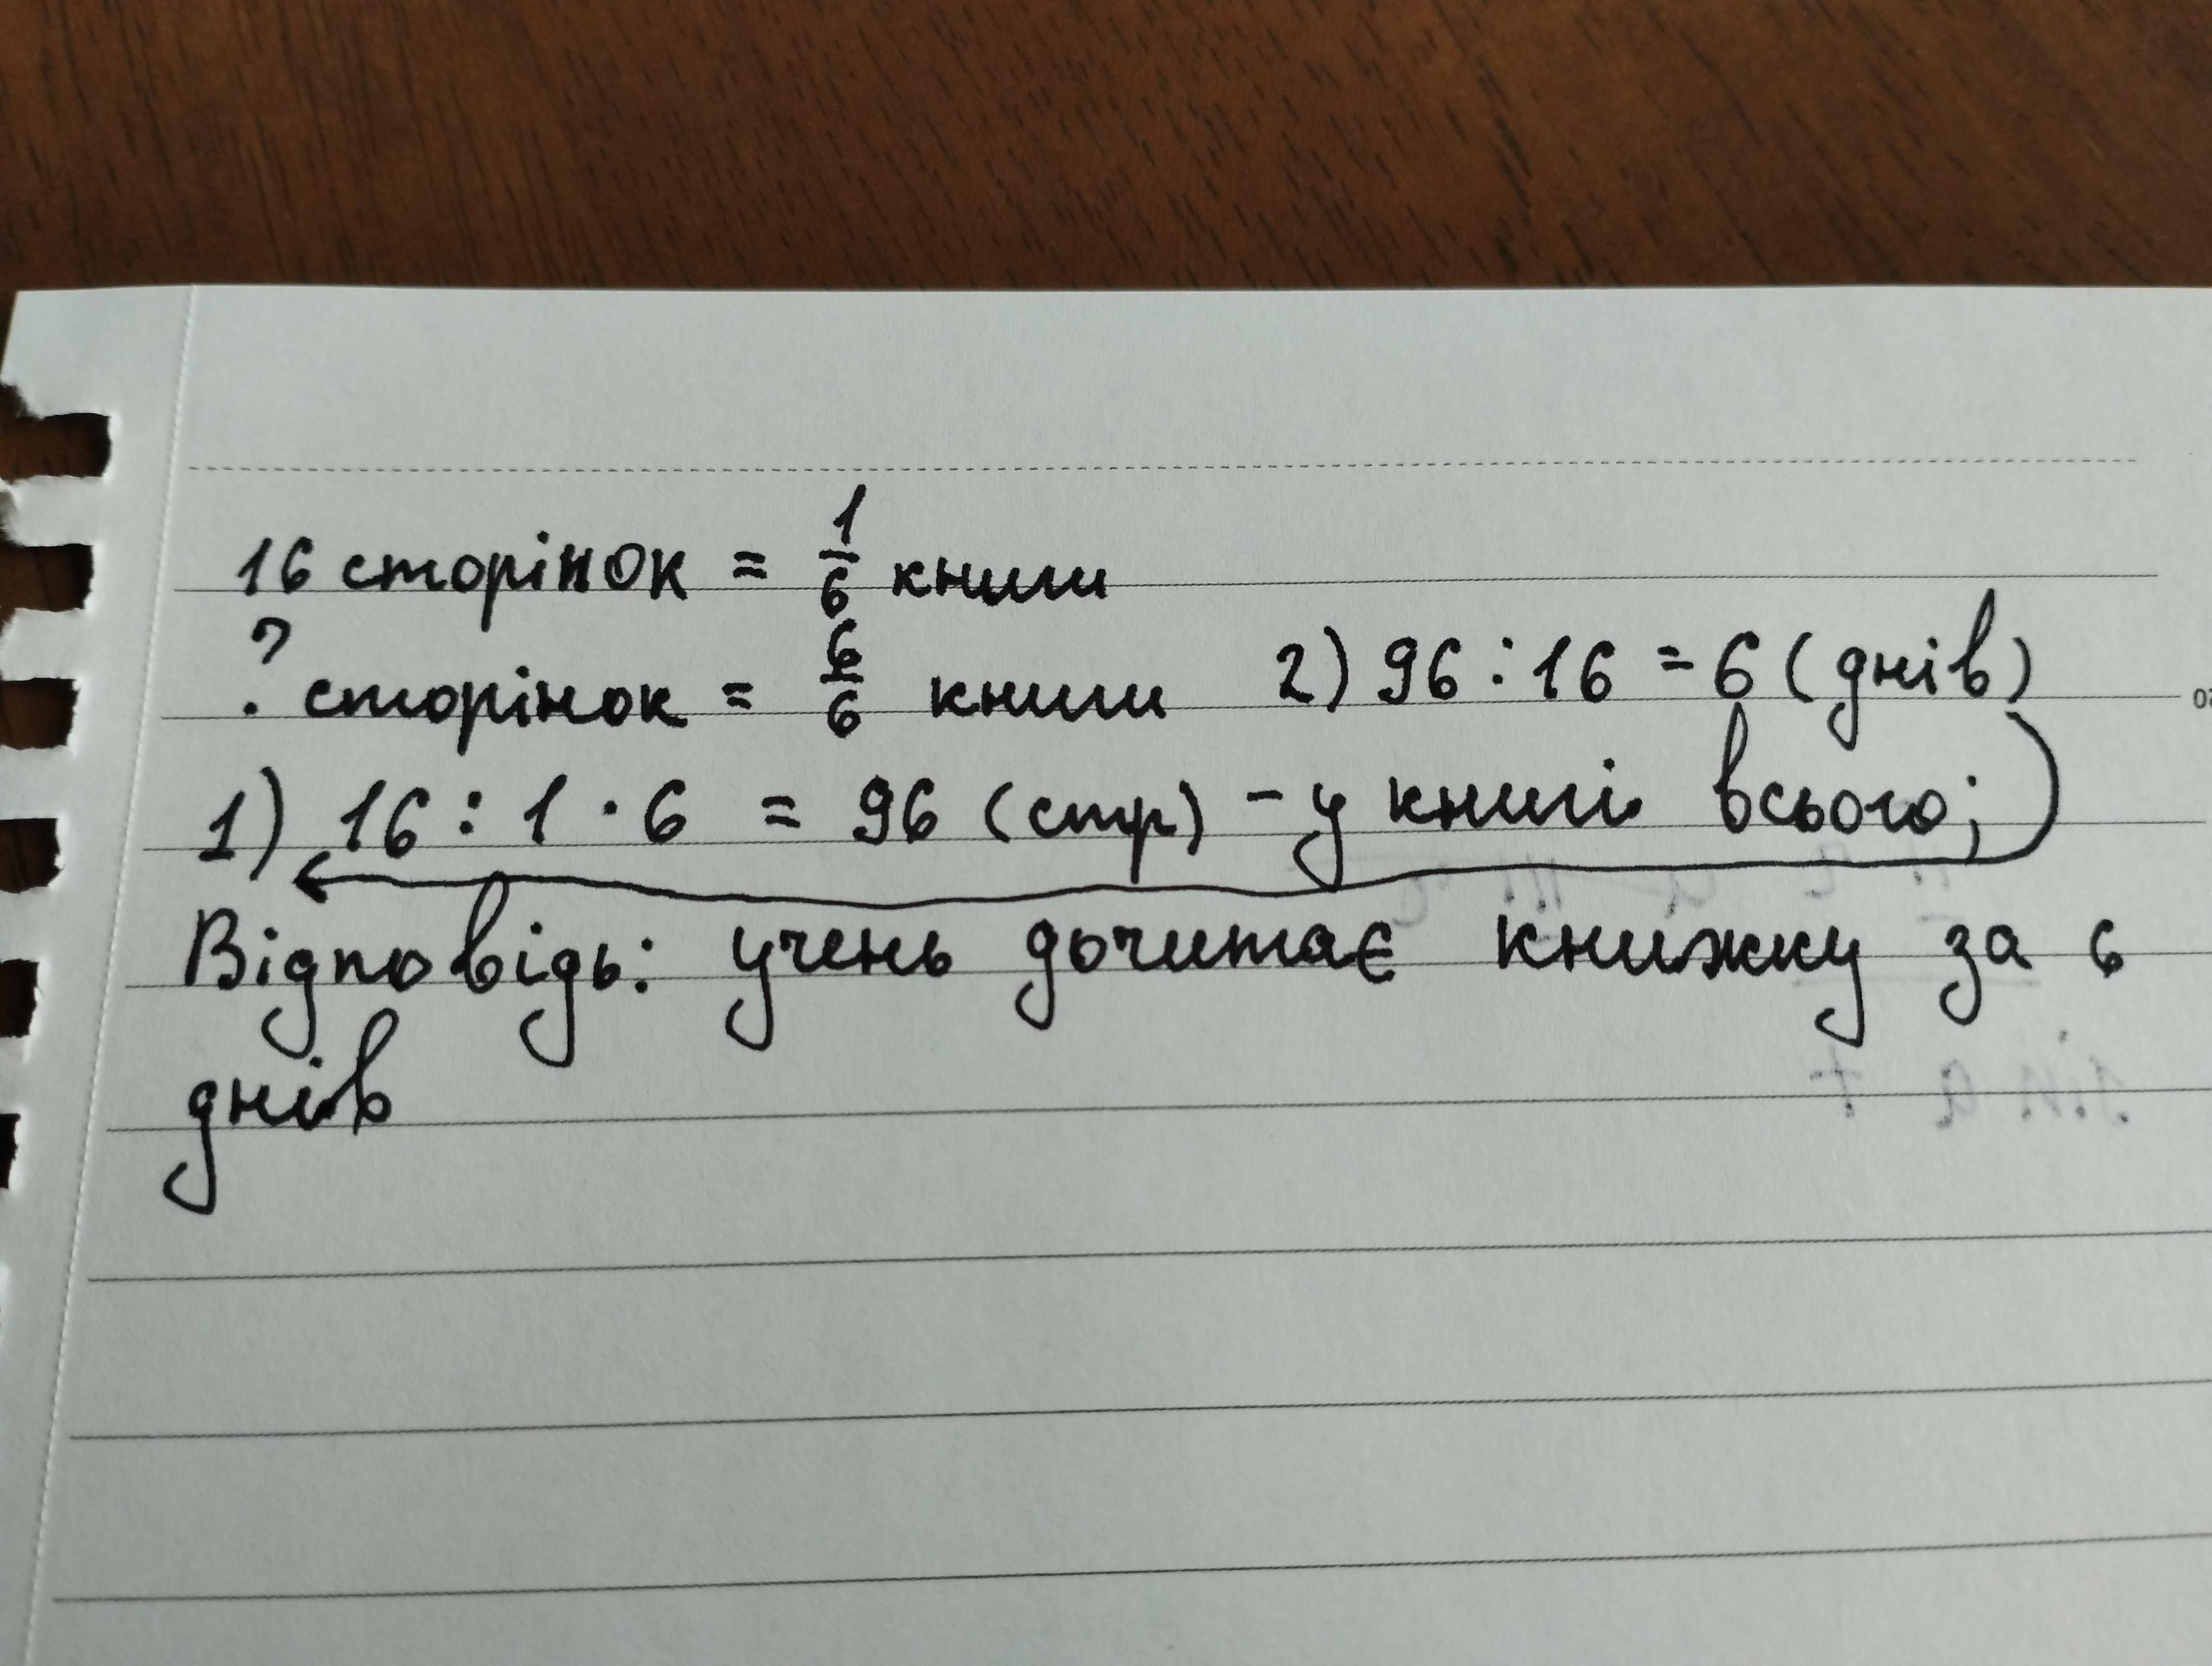 16 сторінок = 1/6 книги
? сторінок = 6/6 книги
1) 16 : 1 · 6 = 96 (стр) - у книзі всього;
2) 96 : 16 = 6 (днів)
Відповідь: учень дочитає книжку за 6
днів